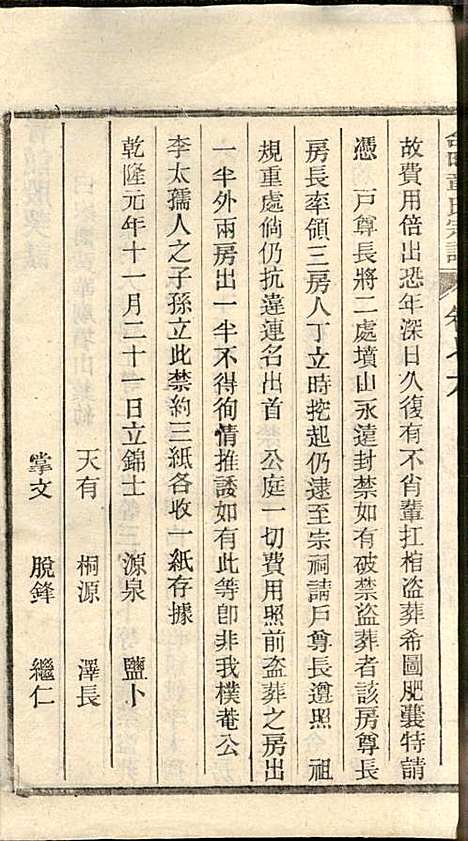 故費用倍出恐年深日久復有不肖輩扛棺盜葬希圖肥囊特請
憑　戶尊長將二處墳山永遠封禁如有破禁盜葬者該房尊長
房長率領三房人丁立時挖起仍逮至宗祠請戶尊長遵照　祖
規重處倘仍抗違連名出首　公庭一切費用照前盜葬之房出
一半外兩房出一半不得徇情推諉如有此等卽非我樸菴公
李太孺人之子孫立此禁約三紙各收一紙存據
乾隆元年十一月二十一日立錦士　源泉　鹽卜
天有　桐源　澤長
掌文　脫鋒　繼仁